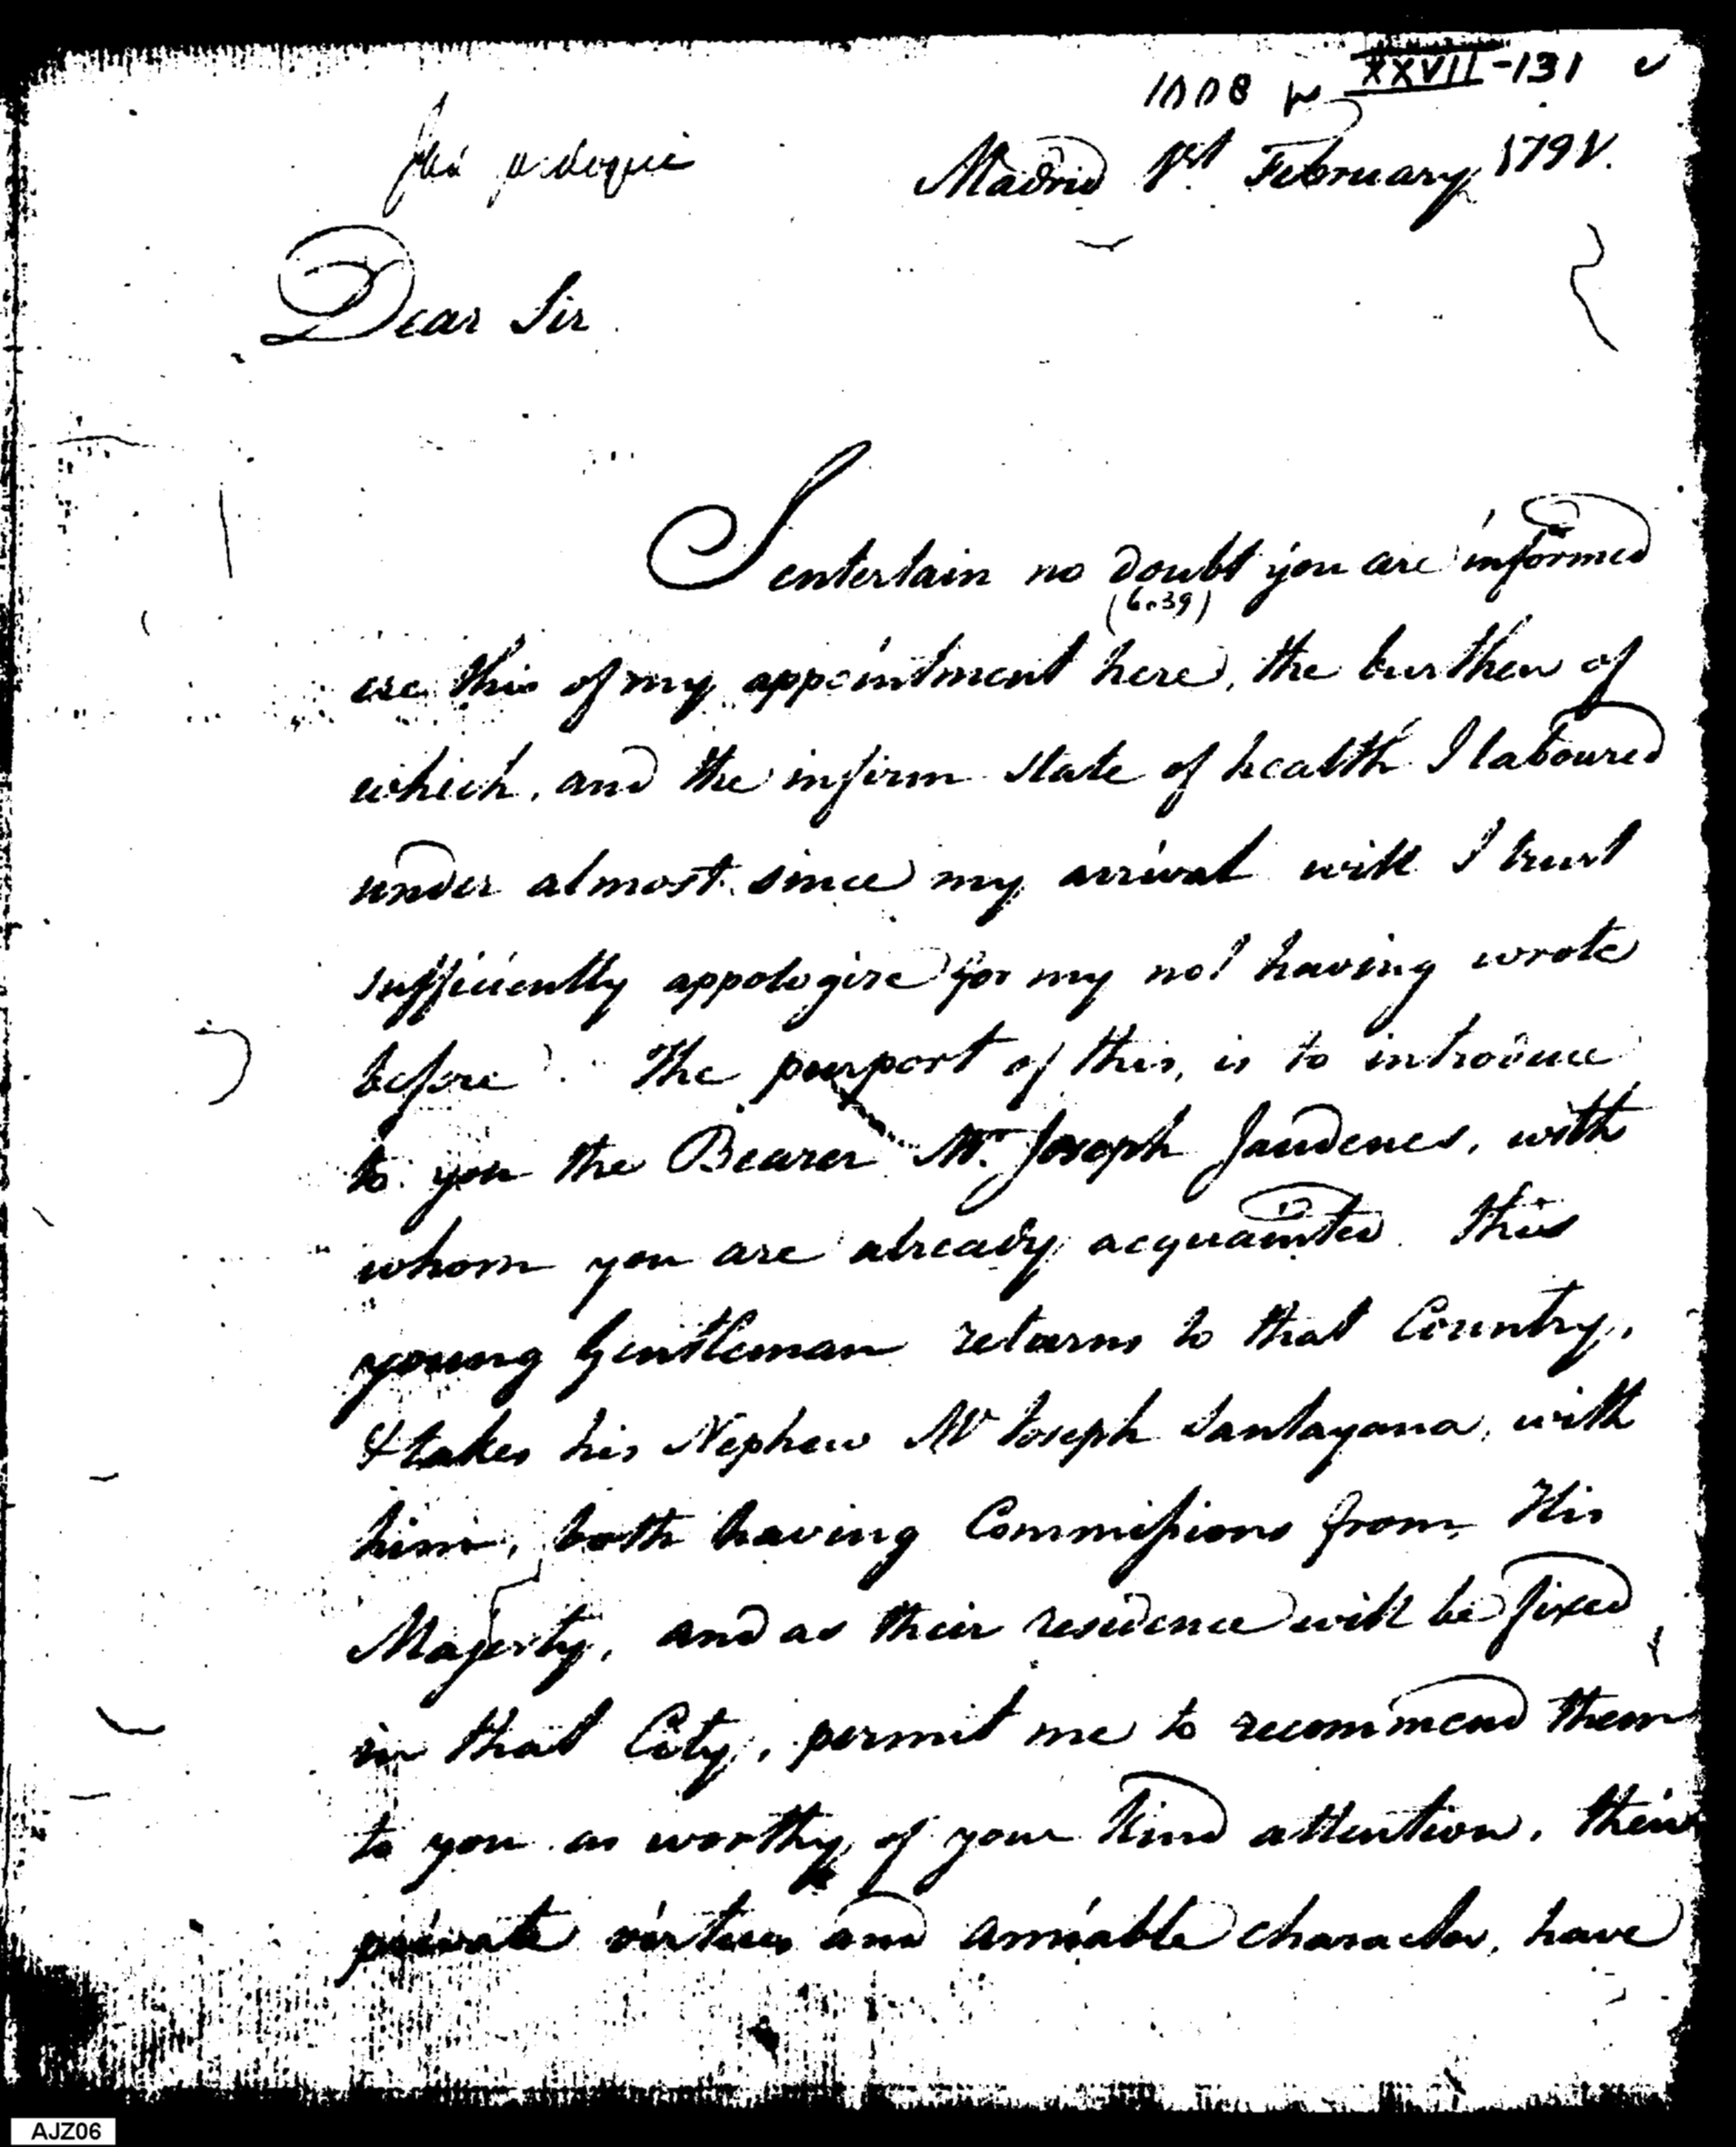 XXVII-131
1008
Madrid 1st February 1791.
Dear Sir
I entertain no doubt you are informed
(6039)
ere this of my appointment here, the burthen of
which, and the infirm state of health I laboured
under almost since my arrival will I trust
sufficiently appologise for my not having wrote
before. The purport of this, is to introduce
to you the Bearer Mr. Joseph Jaudenes, with
whom you are already acquainted. this
young Gentleman returns to that Country,
& takes his Nephew Mr Joseph Santayana, with
him, both having Commissions from His
Majesty, and as their residence will be fixed
in that City, permit me to recommend them
to you as worthy of your kind attention, their
private virtues and amiable character, have
AJZ06